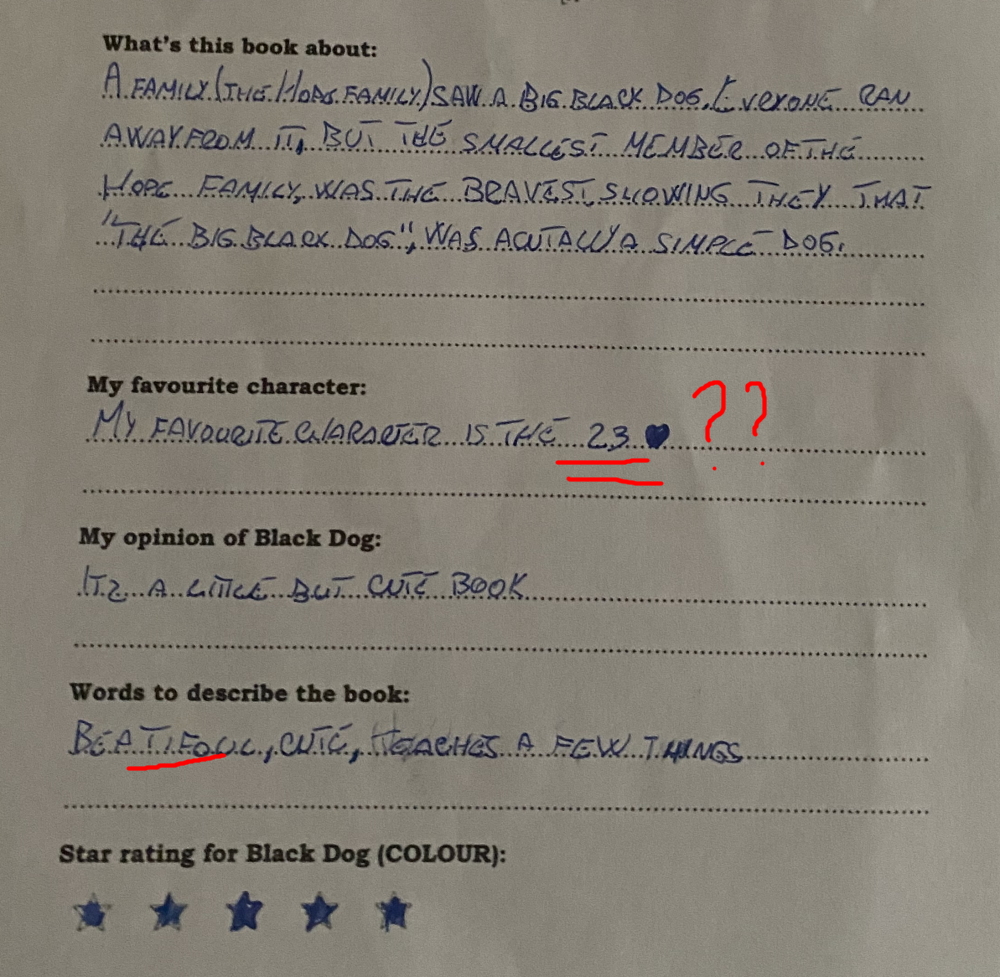 What's this book about:
A FAMILY (THE HOPE FAMILY) SAW A BIG BLACK DOG. EVERYONE RAN
AWAY FROM IT, BUT THE SMALLEST MEMBER OF THE
HOPE FAMILY, WAS THE BRAVEST, SHOWING THEY THAT
"THE BIG BLACK DOG", WAS ACUTALLY A SIMPLE DOG.
My favourite character:
MY FAVOURITE CHARACTER IS THE 23 ♥ ??
My opinion of Black Dog:
ITS A LITTLE BUT CUTE BOOK
Words to describe the book:
BEATIFOUL, CUTE, TEACHES A FEW THINGS
Star rating for Black Dog (COLOUR):